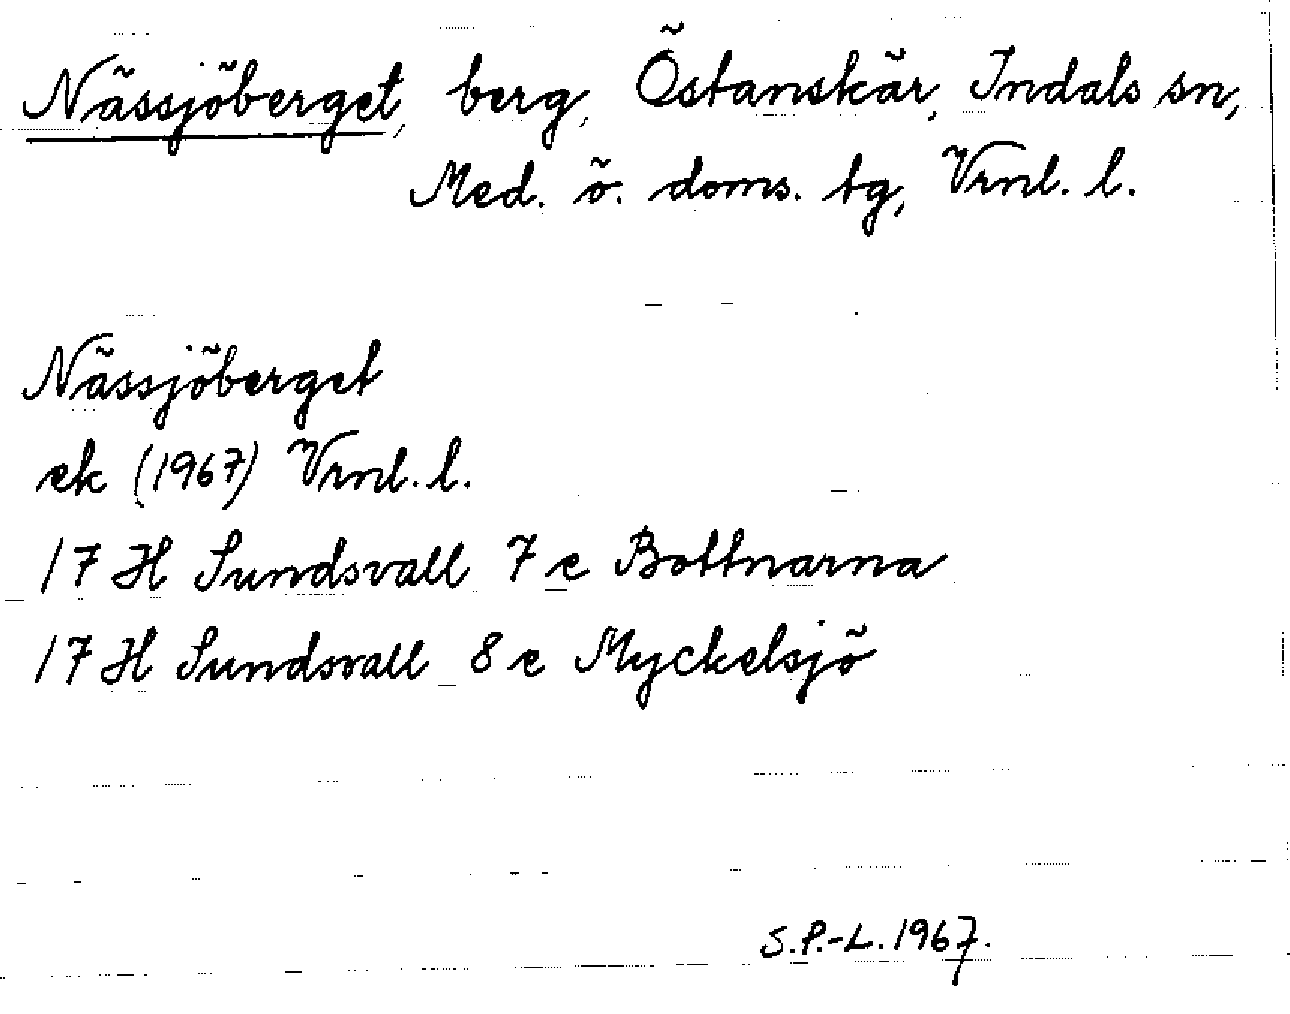 Nässjöberget, berg, Östanskär, Indals sn,
Med. ö. doms. tg, Vrnl. l.
Nässjöberget
ek (1967) Vrnl. l.
17 H Sundsvall 7 e Bottnarna
17 H Sundsvall 8 e Myckelsjö
S.P.-L. 1967.